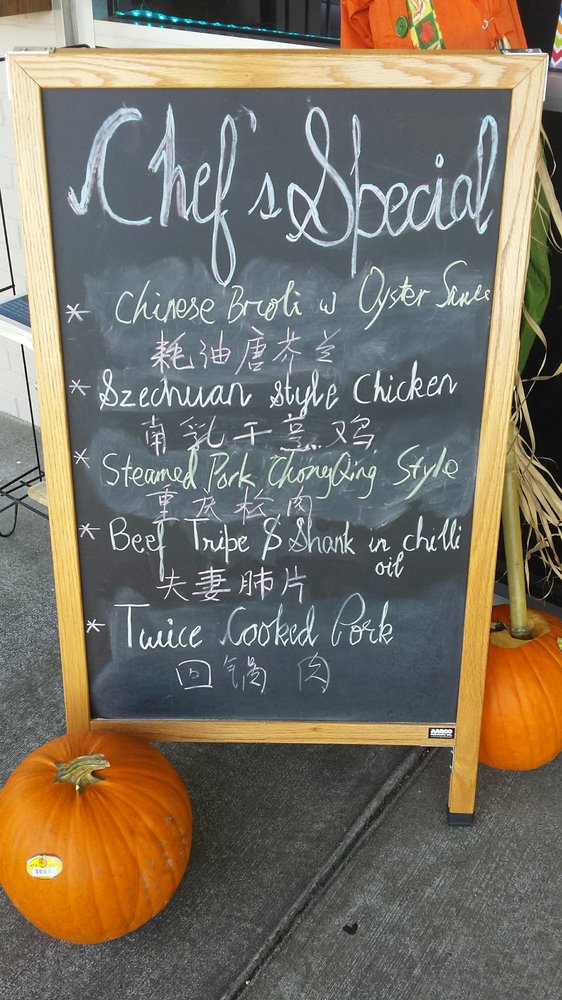 Chef's Special
* Chinese Brroli w Oyster Sauce
耗油唐芥兰
* Szechuan Style Chicken
南乳干烹鸡
* Steamed Pork ChongQing Style
重庆松肉
* Beef Tripe & Shank in chilli
oil
夫妻肺片
* Twice Cooked Pork
回锅肉
AARCO